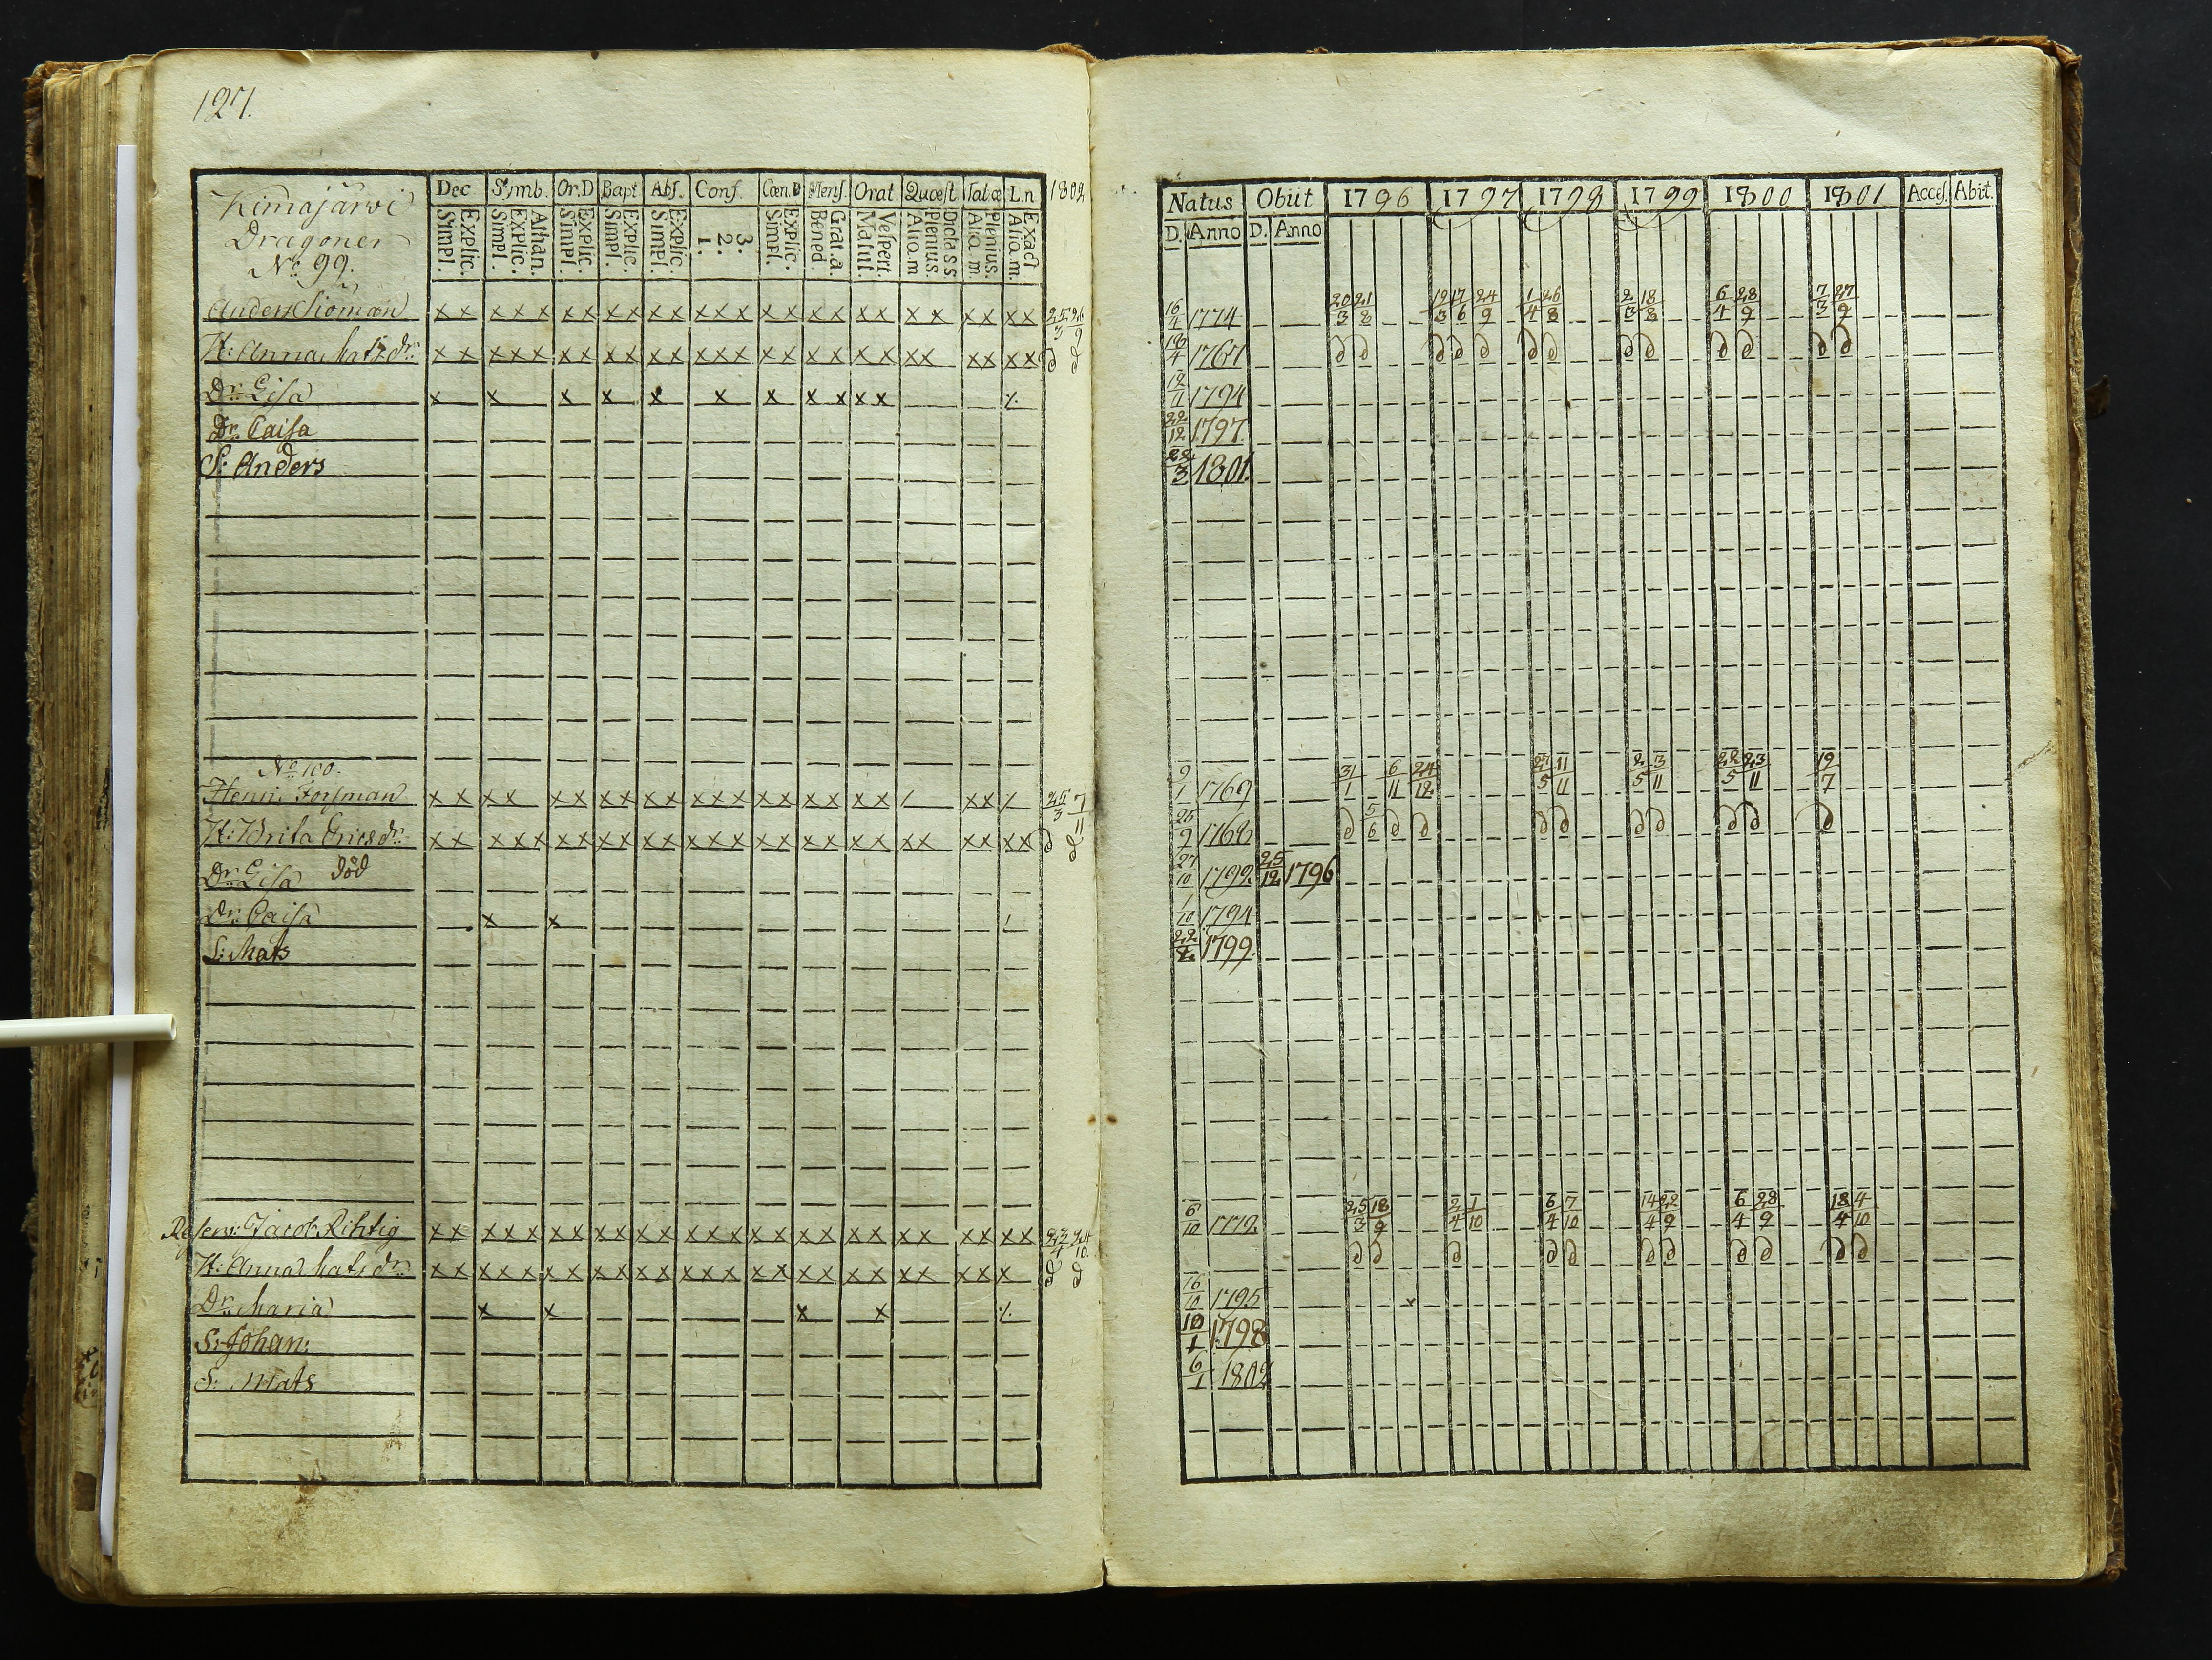 127.
Kimajärwi
Dragoner
No 99.
Dec Symb. Or.D Bapt Abs. Conf. Cœn.D Mens. Orat Quæst Tabœ L.n 1802
Simpl. Explic. Simpl. Explic. Athan. Simpl. Explic. Simpl. Explic. Simpl. Explic. 1. 2. 3. Simpl. Explic. Bened. Grat.a Matut. Vespert. Alio.m Plenius. Dicta s s Alia.m. Plenius. Alio.m. Exact
Anders Sioman x x x x x x x x x x x x x x x x x x x x x x x x x 25/3 26/9
H: Anna Matz dr. x x x x x x x x x x x x x x x x x x x x x x x x x d d
Dr. Lisa x x x x x x x x x x x
Dr. Caisa
S: Anders
No 100.
Henr: Forsman x x x x x x x x x x x x x x x x x x / x x / 25/3 7/11
H: Brita Ericsdr. x x x x x x x x x x x x x x x x x x x x x x x x x d d
Dr. Lisa död
Dr. Caisa x x
S: Mats
Reserv: Jacob Rihtig x x x x x x x x x x x x x x x x x x x x x x x x x 23/4 24/10
H: Anna Matsdr. x x x x x x x x x x x x x x x x x x x x x x x x d d
Dr. Maria x x x x
S: Johan:
S: Mats
Natus Obiit 1796 1797 1798 1799 1800 1801 Acces. Abit.
D. Anno D. Anno
16/4 1774 20/3 21/8 12/3 17/6 24/9 1/4 26/8 2/3 18/8 6/4 28/9 7/3 27/9
1767 d d d d d d d d d d d d d
12/11 1794
22/12 1797.
22/3 1801.
9/1 1769 31/1 6/11 24/12 27/5 11/11 2/5 3/11 22/5 23/11 19/7
26/9 1768 d 5/6 d d d d d d d d d
27/10 1792 25/12 1796
1/10 1794
22/ 1799
6/10 1772 25/3 18/9 2/4 1/10 6/4 7/10 14/4 22/9 6/4 28/9 18/4 4/10
d d d d d d d d d d d
16/10 1795 x
10/1 1798
6/1 1802